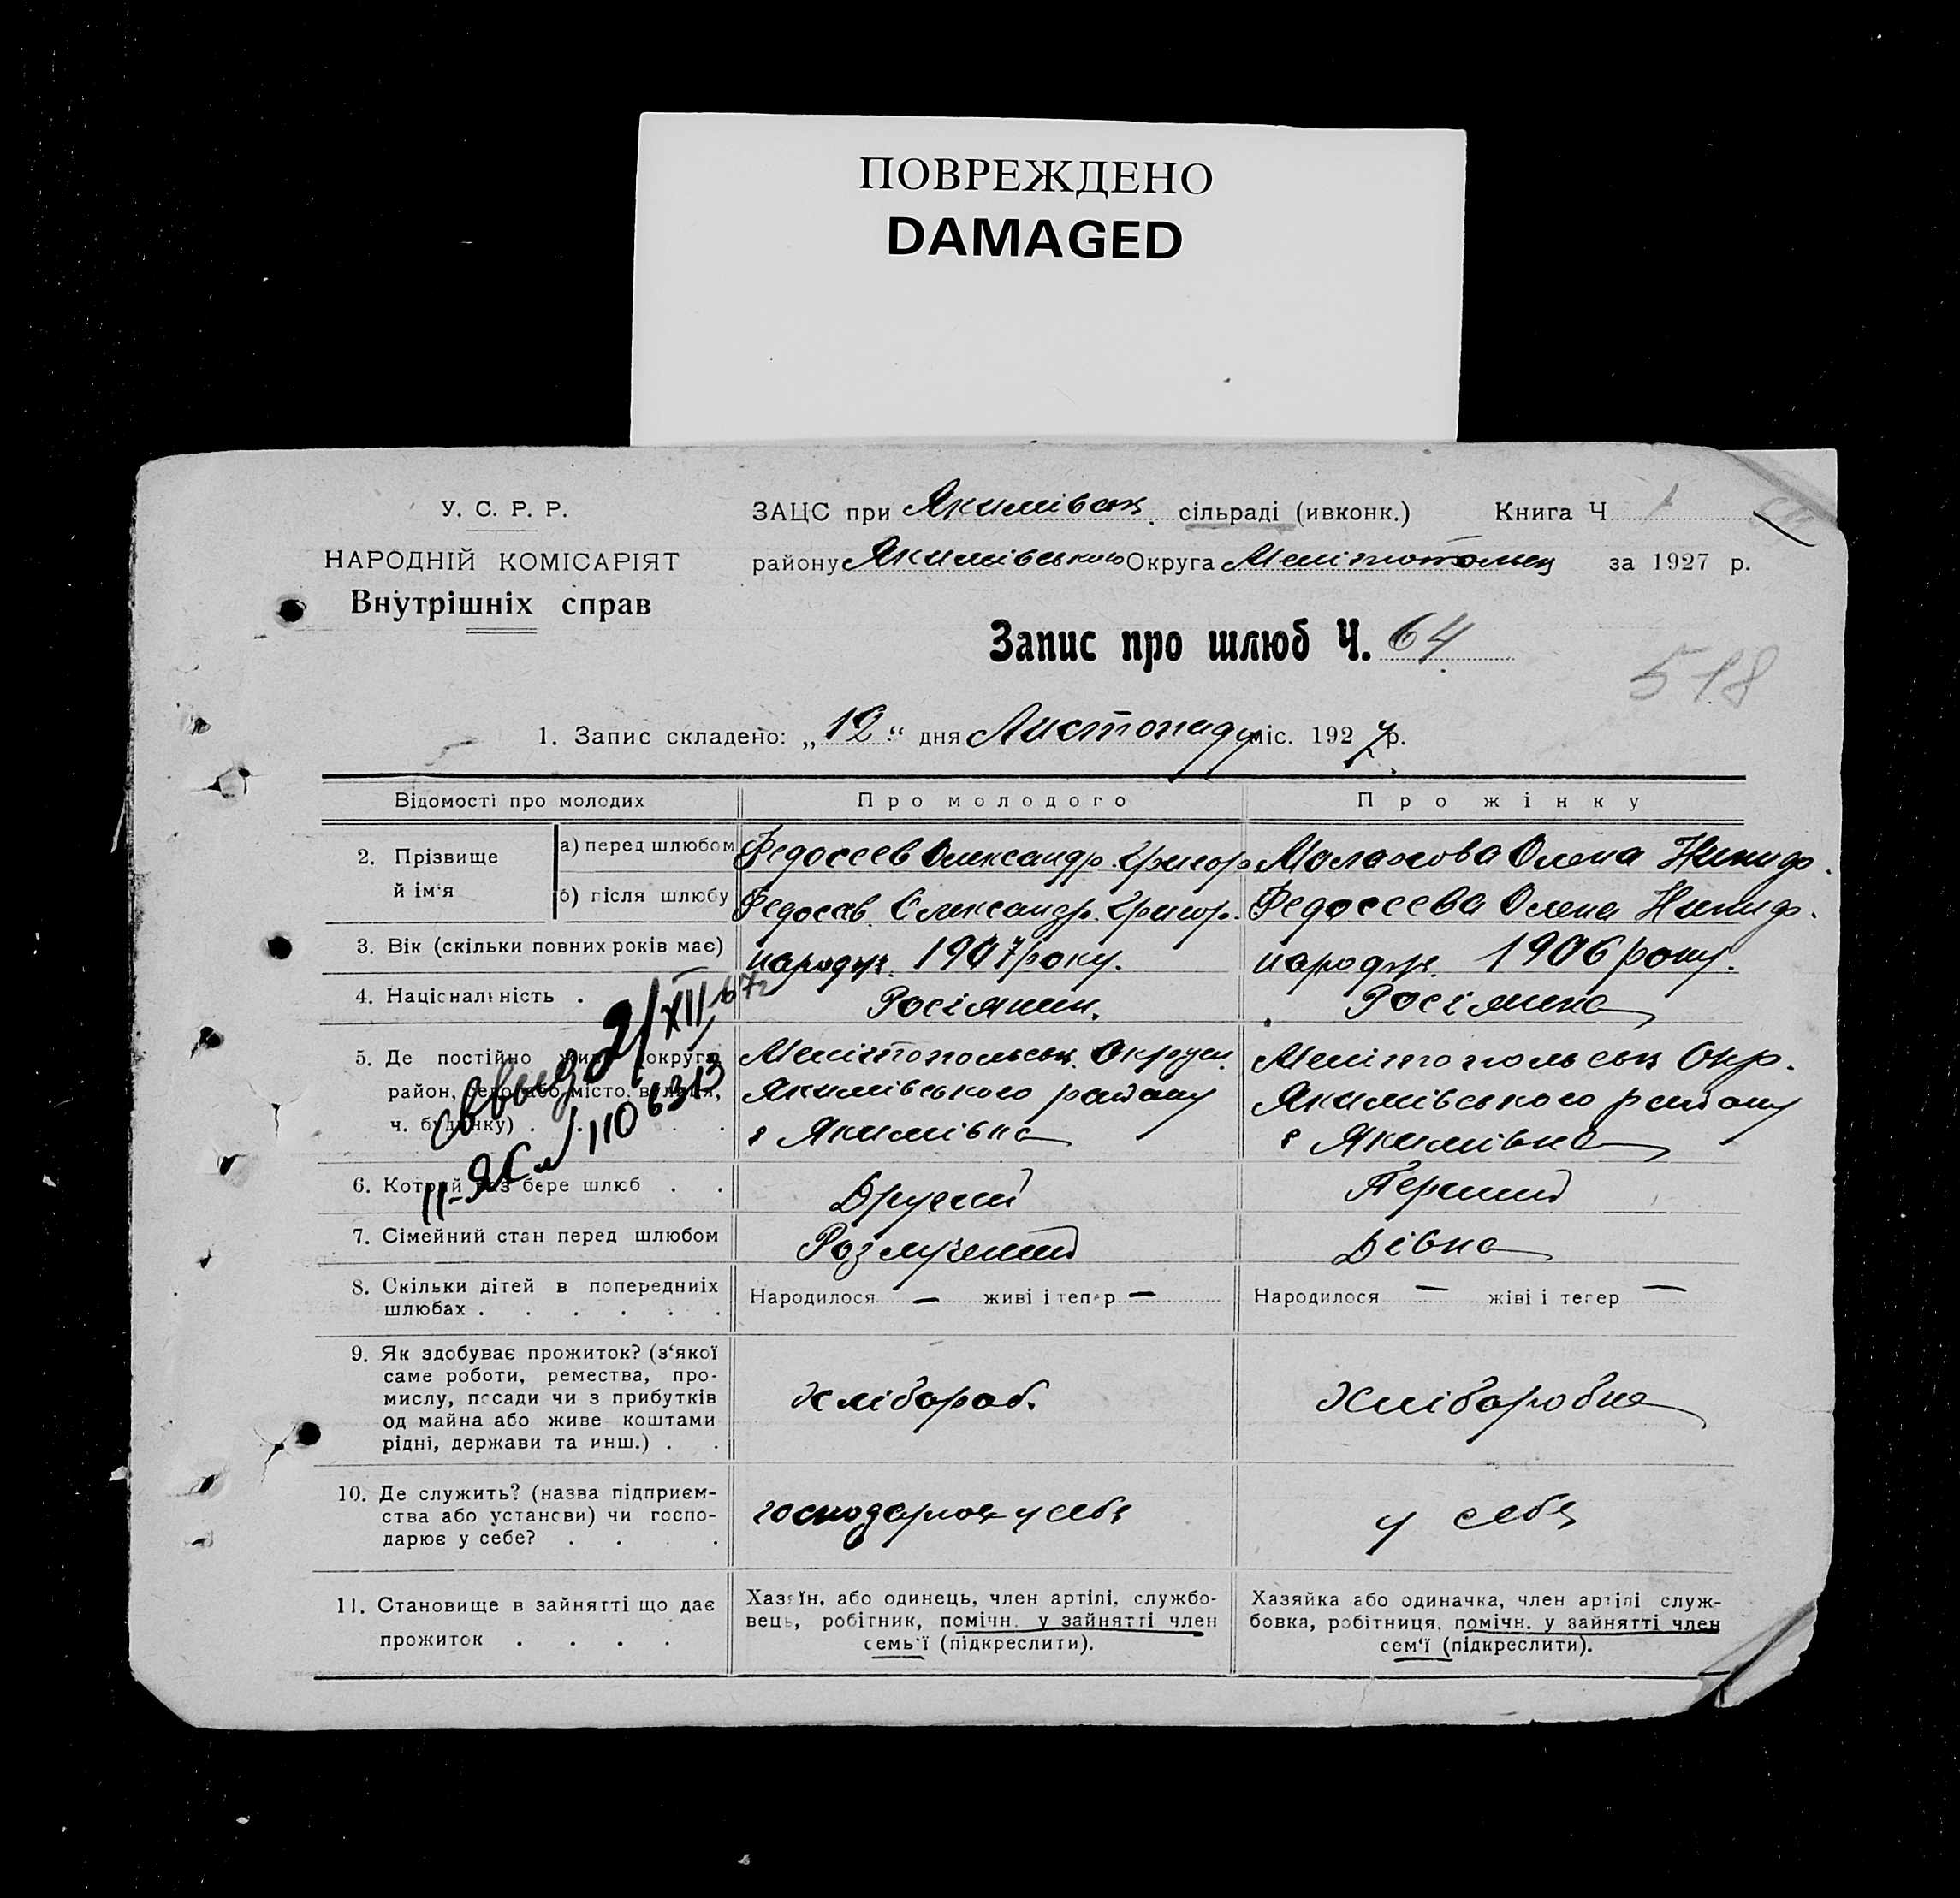 ПОВРЕЖДЕНО
DAMAGED
У. С. Р. Р.
НАРОДНІЙ КОМІСАРІЯТ
Внутрішніх справ
ЗАЦС при Якимівськ. сільраді (ивконк.) Книга Ч 1
району Якимівського Округа Мелітопольськ за 1927 р.
Запис про шлюб Ч. 64
518
1. Запис складено: „12“ дня Листопаду міс. 1927 р.
Відомості про молодих Про молодого Про жінку
2. Прізвище й ім'я
а) перед шлюбом Федосеев Олександр Григор Малахова Олена Никиф.
б) після шлюбу Федосеев Олександр. Григор. Федосеева Олена Никиф.
3. Вік (скільки повних років має) народж. 1907 року. народж. 1906 року.
4. Національність . Росіянин. Росіянка
5. Де постійно живе округа, Мелітопольськ. Округи. Мелітопольськ Окр.
район, село або місто, вулиця, Якимівського району Якимівського району
ч. будинку) . . . . с Якимівка с Якимівка
2/XII 67г
1106313
6. Котрий раз бере шлюб . . Другий Перший
7. Сімейний стан перед шлюбом Розлучений Дівка
8. Скільки дітей в попередниіх Народилося — живі і тепер — Народилося — жіві і тепер —
шлюбах . . . . . .
9. Як здобуває прожиток? (з'якої
саме роботи, ремества, про-
мислу, посади чи з прибутків Хлібороб. Хліборобка
од майна або живе коштами
рідні, держави та инш.) . .
10. Де служить? (назва підприєм-
ства або установи) чи госпо- господарює у себе у себе
дарює у себе? . . . .
11. Становище в зайнятті що дає
прожиток . . . .
Хазяїн, або одинець, член артілі, службо-
вець, робітник, помічн. у зайнятті член
семь'ї (підкреслити).
Хазяйка або одиначка, член артілі служ-
бовка, робітниця, помічн. у зайнятті член
сем'ї (підкреслити).